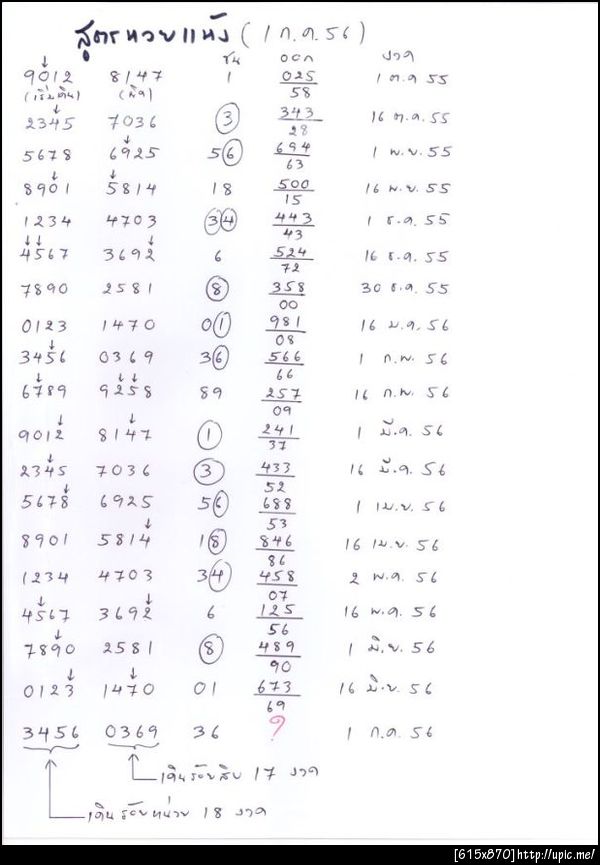 สูตรหวยแห้ง (1 ก.ค. 56)
ชน ออก งวด
9012 8147 1 025 1 ต.ค 55
(เริ่มเดิน) (มิด) 58
2345 7036 3 343 16 ต.ค. 55
28
5678 6925 56 694 1 พ.ย. 55
63
8901 5814 18 500 16 พ.ย. 55
15
1234 4703 34 443 1 ธ.ค. 55
43
4567 3692 6 524 16 ธ.ค. 55
72
7890 2581 8 358 30 ธ.ค. 55
00
0123 1470 01 981 16 ม.ค. 56
08
3456 0369 36 566 1 ก.พ. 56
66
6789 9258 89 257 16 ก.พ. 56
09
9012 8147 1 241 1 มี.ค. 56
37
2345 7036 3 433 16 มี.ค. 56
52
5678 6925 56 688 1 เม.ย. 56
53
8901 5814 18 846 16 เม.ย. 56
86
1234 4703 34 458 2 พ.ค. 56
07
4567 3692 6 125 16 พ.ค. 56
56
7890 2581 8 489 1 มิ.ย. 56
90
0123 1470 01 673 16 มิ.ย. 56
69
3456 0369 36 ? 1 ก.ค. 56
เดินร้อยสิบ 17 งวด
เดินร้อยหน่วย 18 งวด
[615x870]http://upic.me/